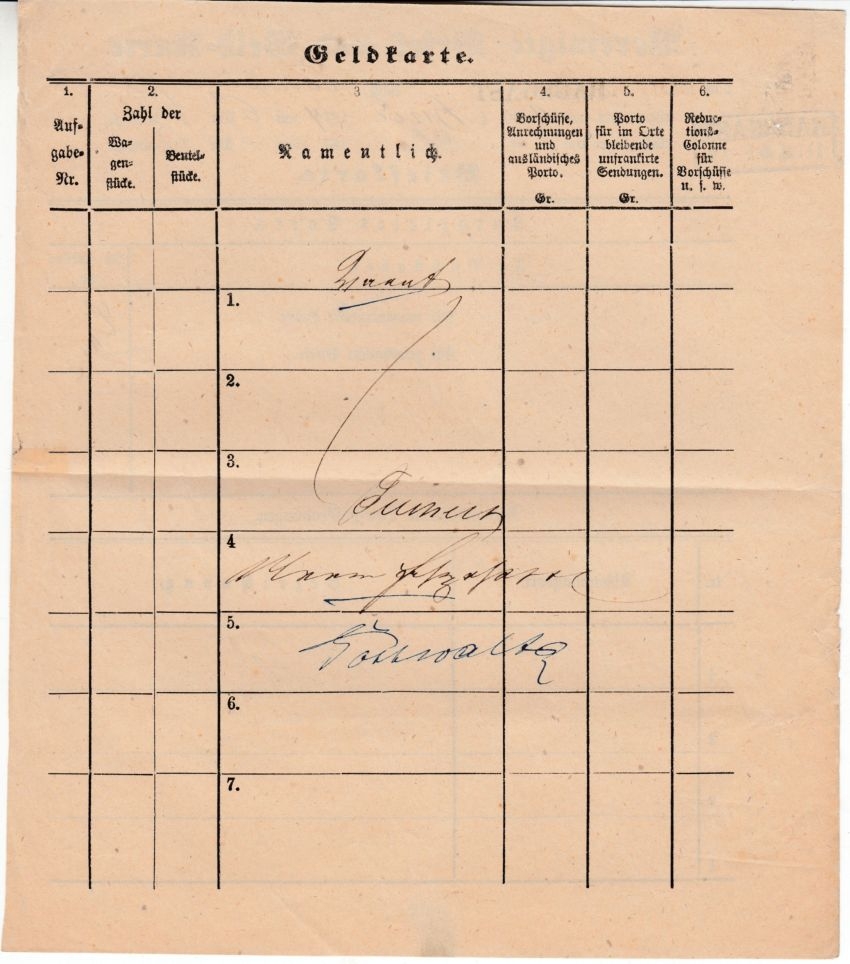 Geldkarte.
1.
Auf-
gabe-
Nr.
2.
Zahl der
Wa-
gen-
stücke.
Beutel-
stücke.
3
Namentlich.
4.
Vorschüsse,
Anrechnungen
und
ausländisches
Porto.
Gr.
5.
Porto
für im Orte
bleibende
unfrankirte
Sendungen.
Gr.
6.
Reduc-
tions-
Colonne
für
Vorschüsse
u. s. w.
1.
2.
3.
4
5.
Gottwalt
6.
7.